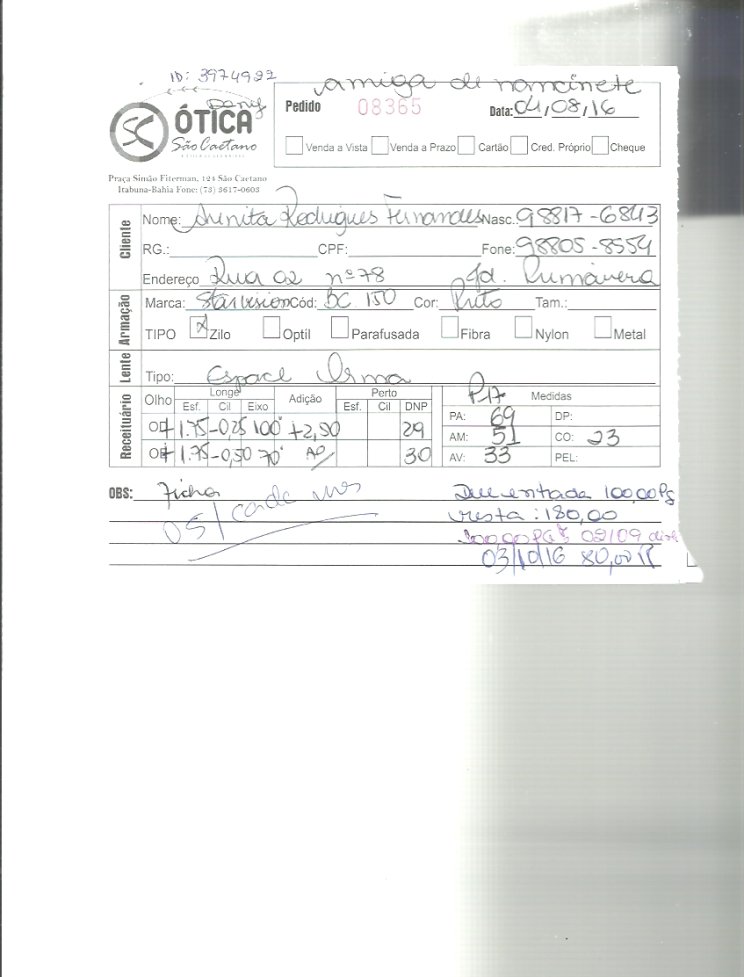 ID: 3974922
amiga de
Dany
ÓTICA
São Caetano
Pedido 08365 Data: 04/08/16
Venda a Vista Venda a Prazo Cartão Cred. Próprio Cheque
Praça Simão Fiterman, 124 São Caetano
Itabuna-Bahia Fone: (73) 3617-0603
Cliente
Nome: Rodrigues Fernandes Nasc. 98817-6843
RG.: CPF: Fone: 98805-8554
Endereço Rua 02 nº 78 Jd. Primavera
Armação
Marca: Starvision Cód: BC 150 Cor: Preto Tam.:
TIPO x Zilo Optil Parafusada Fibra Nylon Metal
Lente
Tipo: Espace Orma
Receituário
Olho Longe Adição Perto Medidas
Esf. Cil Eixo Esf. Cil DNP
+1.75 -0,25 100° +2,50 29
+1.75 -0,50 70° 30
PA: 69 DP:
AM: 51 CO: 23
AV: 33 PEL:
OBS: Ficha
OS/
Deu entrada 100,00 Pg
resta: 180,00
100,00 02/09
03/10/16 80,00